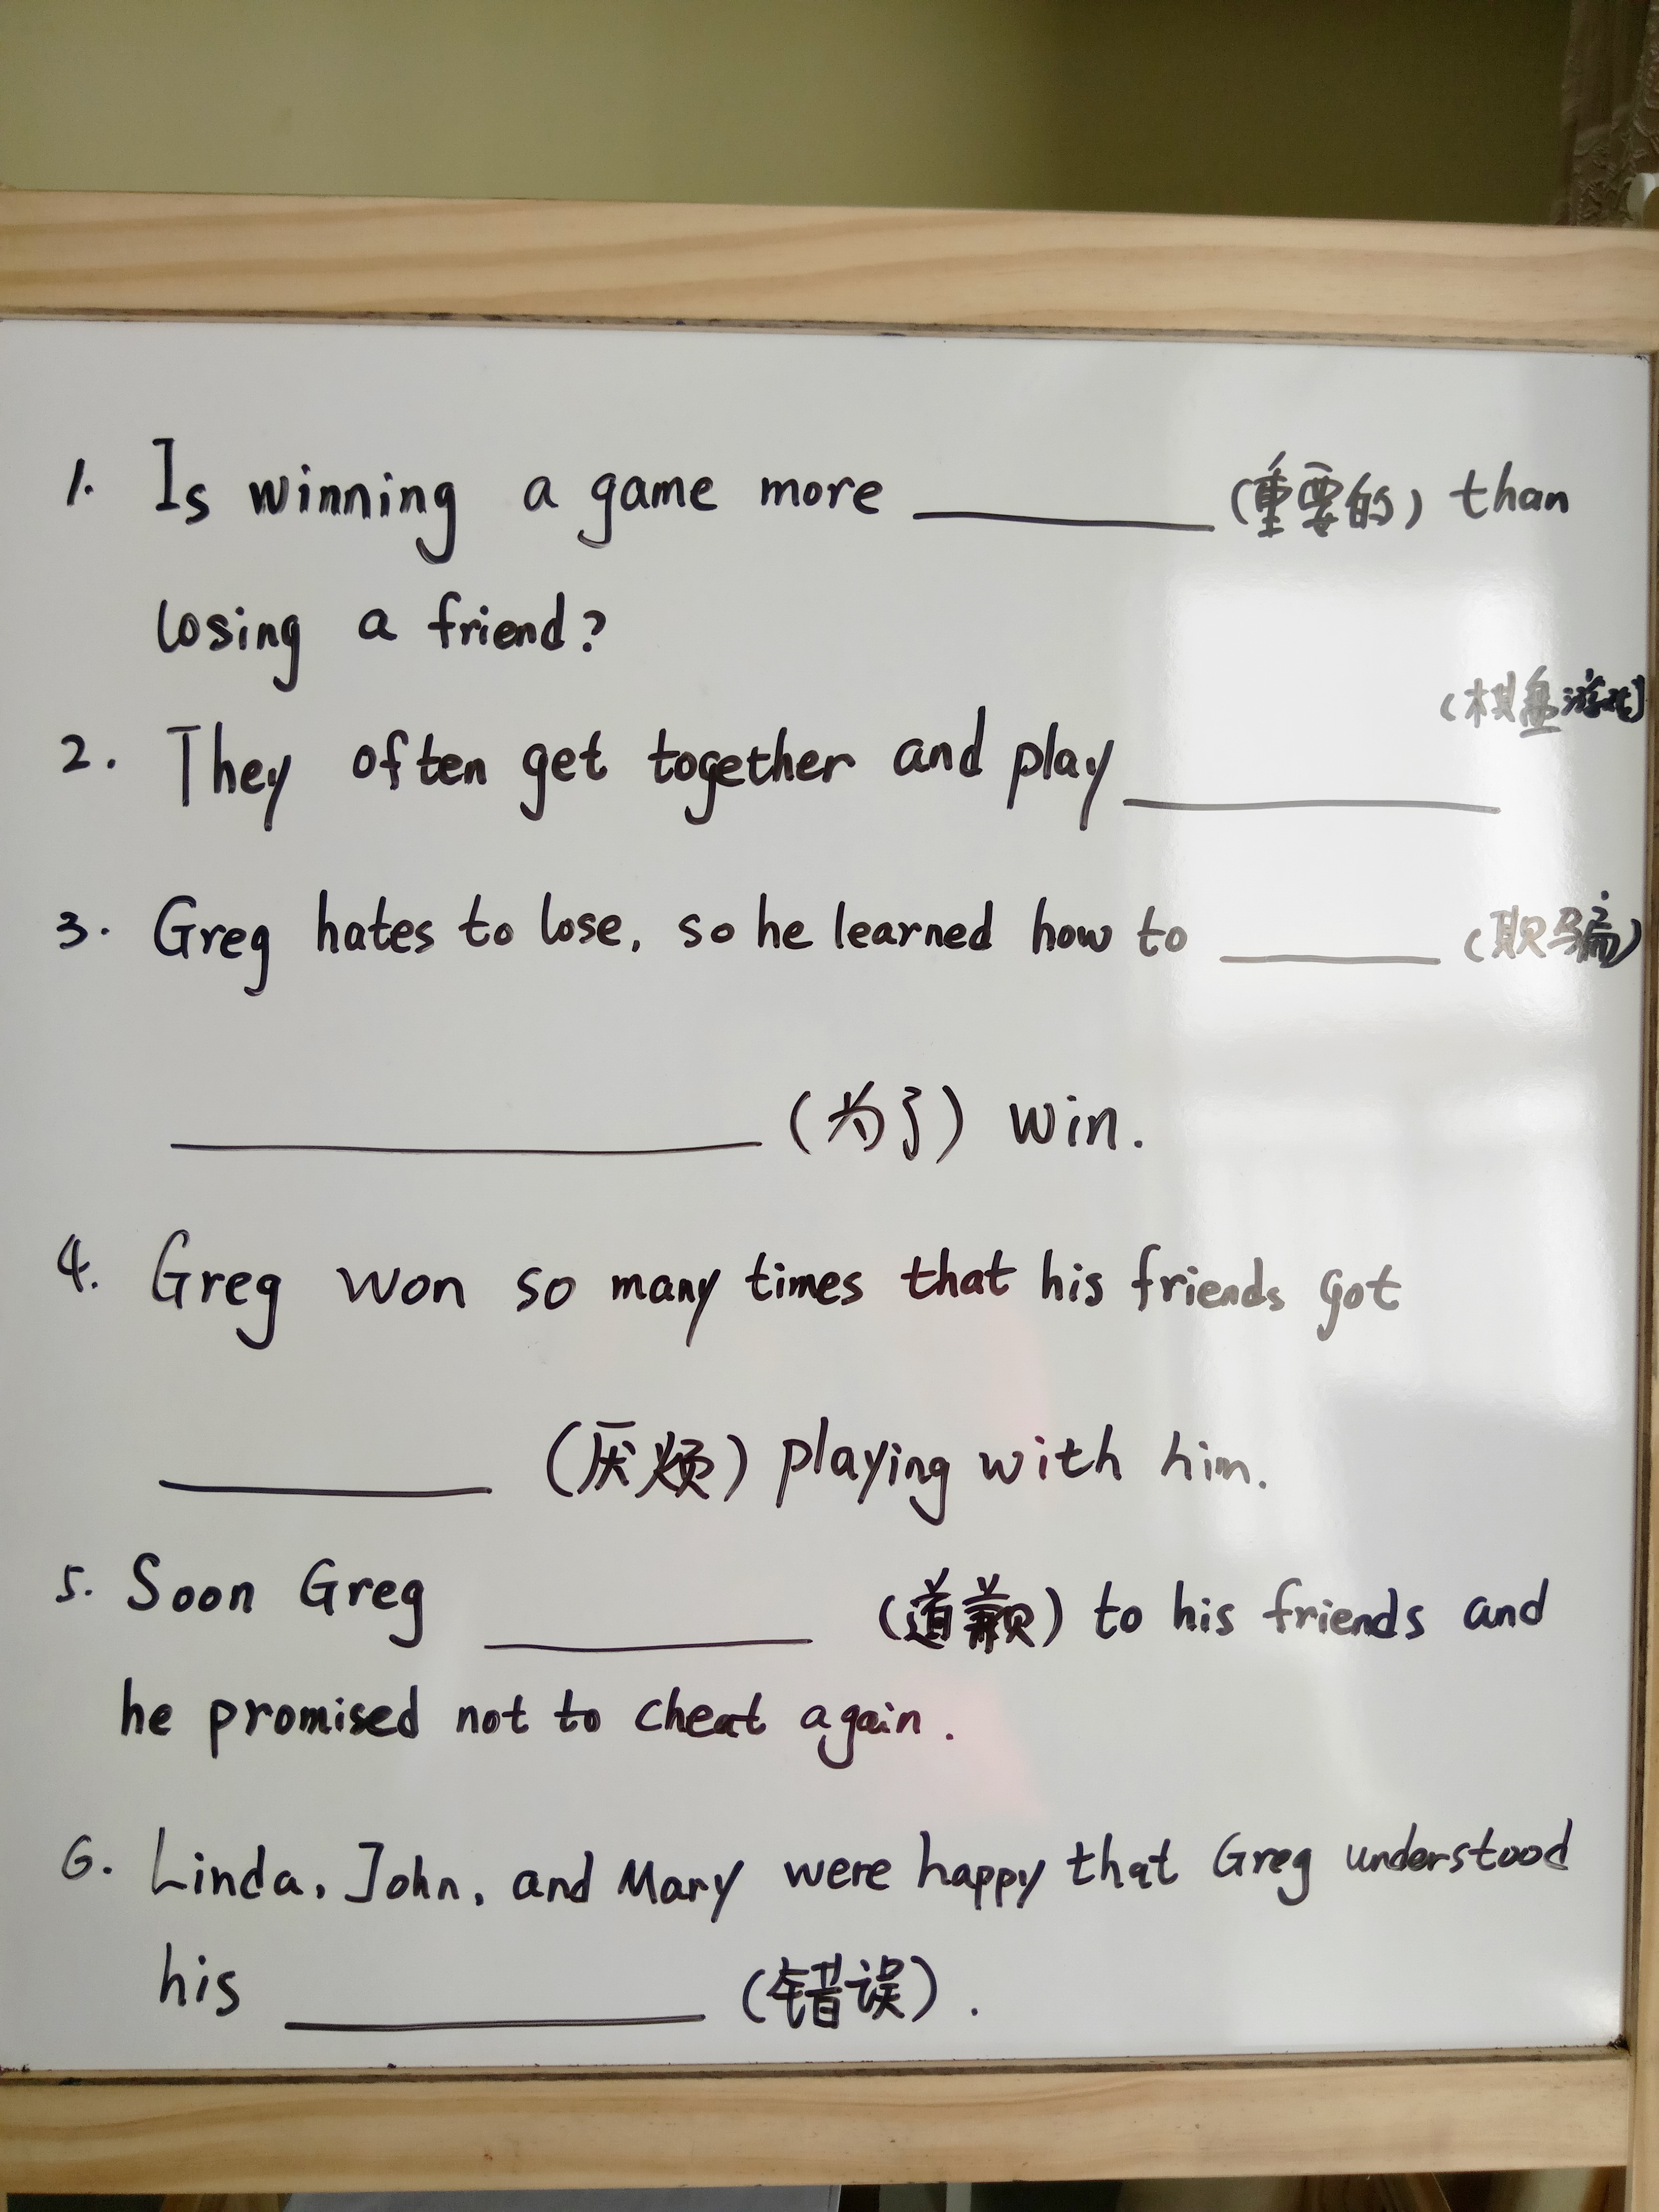 1. Is winning a game more ________ (重要的) than
losing a friend?
(棋盘游戏)
2. They often get together and play ________
3. Greg hates to lose, so he learned how to ________ (欺骗)
________ (为了) win.
4. Greg won so many times that his friends got
________ (厌烦) playing with him.
5. Soon Greg ________ (道歉) to his friends and
he promised not to cheat again.
6. Linda, John, and Mary were happy that Greg understood
his ________ (错误).